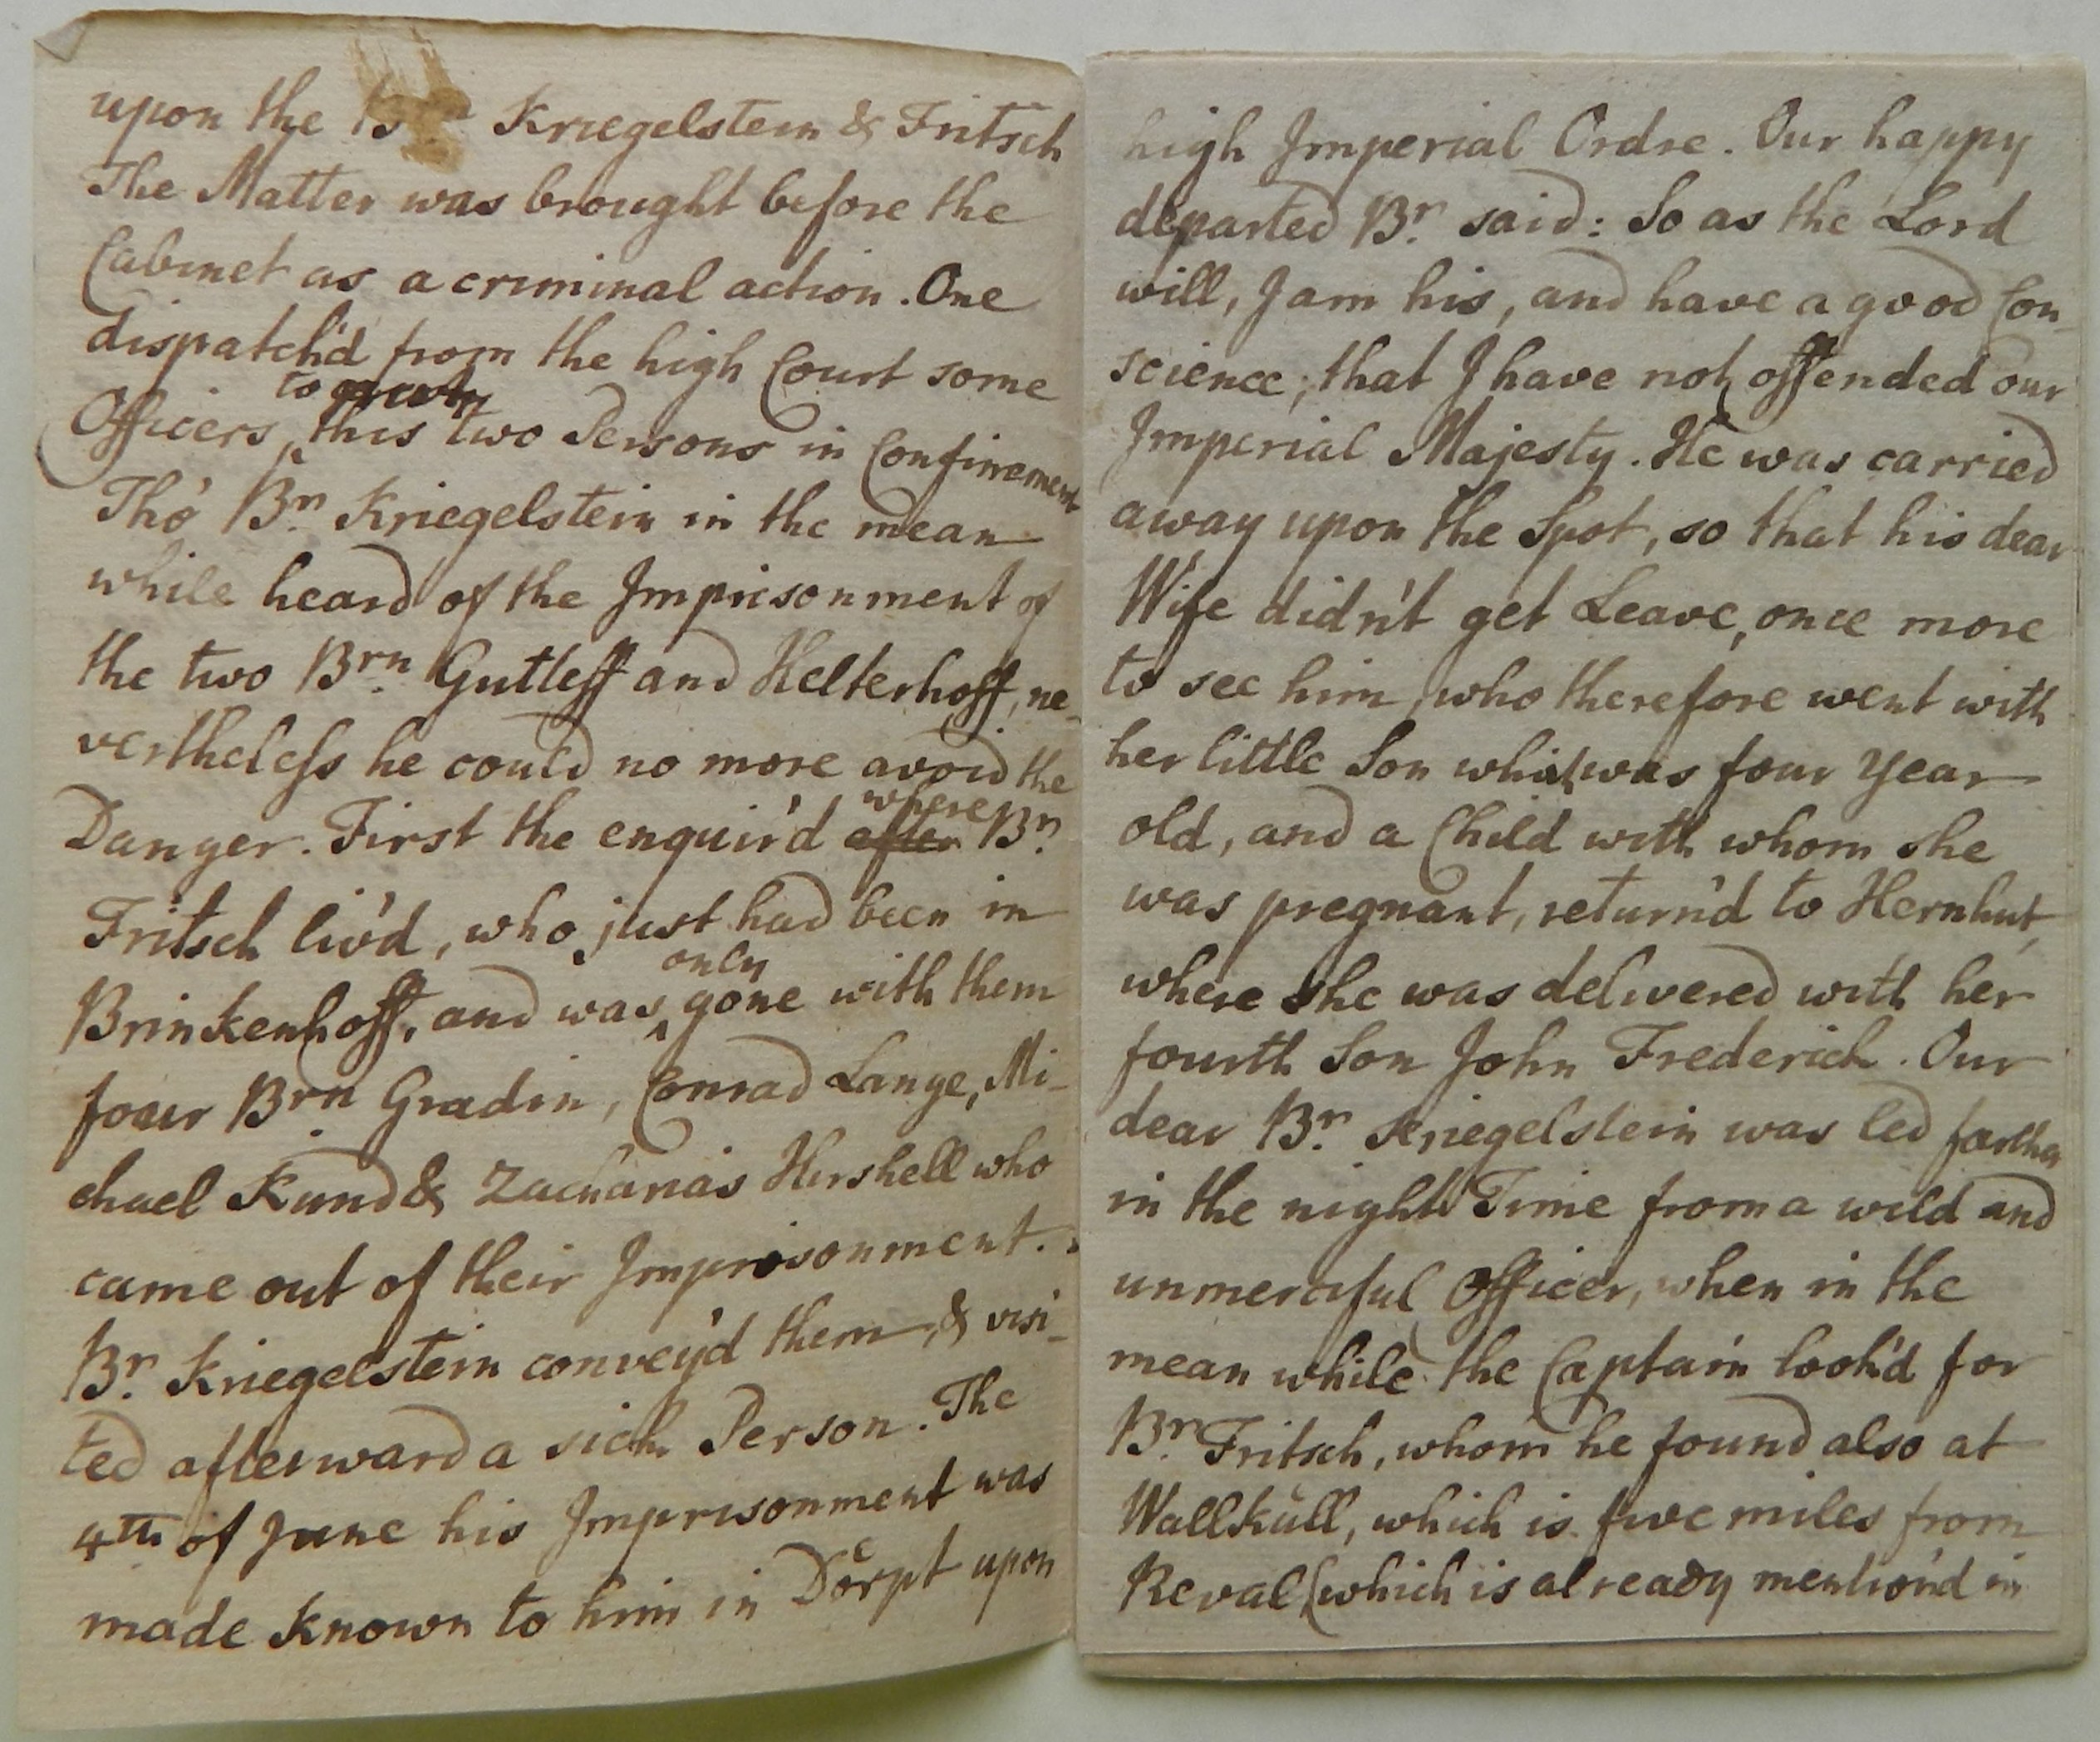 upon the Kriegelstein & Fritsch
The Matter was brought before the
Cabinet as a criminal action. One
dispatch'd from the high Court some
to
Officers, this two Persons in Confinement
Tho' Br. Kriegelstein in the mean
while heard of the Imprisonment of
the two Brn. Gutleff and Helterhoff, ne-
vertheless he could no more avoid the
where
Danger. First the enquir'd after Br.
Fritsch liv'd, who just had been in
only
Brinkenhoff, and was gone with them
four Brn. Gradin, Conrad Lange, Mi-
chael Kund & Zacharias Hirshell who
came out of their Imprisonment.
Br. Kriegelstein convey'd them, & visi-
ted afterward a sick Person. The
4th of June his Imprisonment was
made known to him in Dörpt upon
high Imperial Ordre. Our happy
departed Br. said: So as the Lord
will, I am his, and have a good Con-
science, that I have not offended our
Imperial Majesty. He was carried
away upon the Spot, so that his dear
Wife didn't get Leave, once more
to see him, who therefore went with
her little Son which was four Year
old, and a Child with whom she
was pregnant, return'd to Hernhut,
where she was delivered with her
fourth Son John Frederich. Our
dear Br. Kriegelstein was led farther
in the night Time from a wild and
unmerciful Officer, when in the
mean while the Captain look'd for
Br. Fritsch, whom he found also at
Wallküll, which is five miles from
Reval (which is already mention'd in